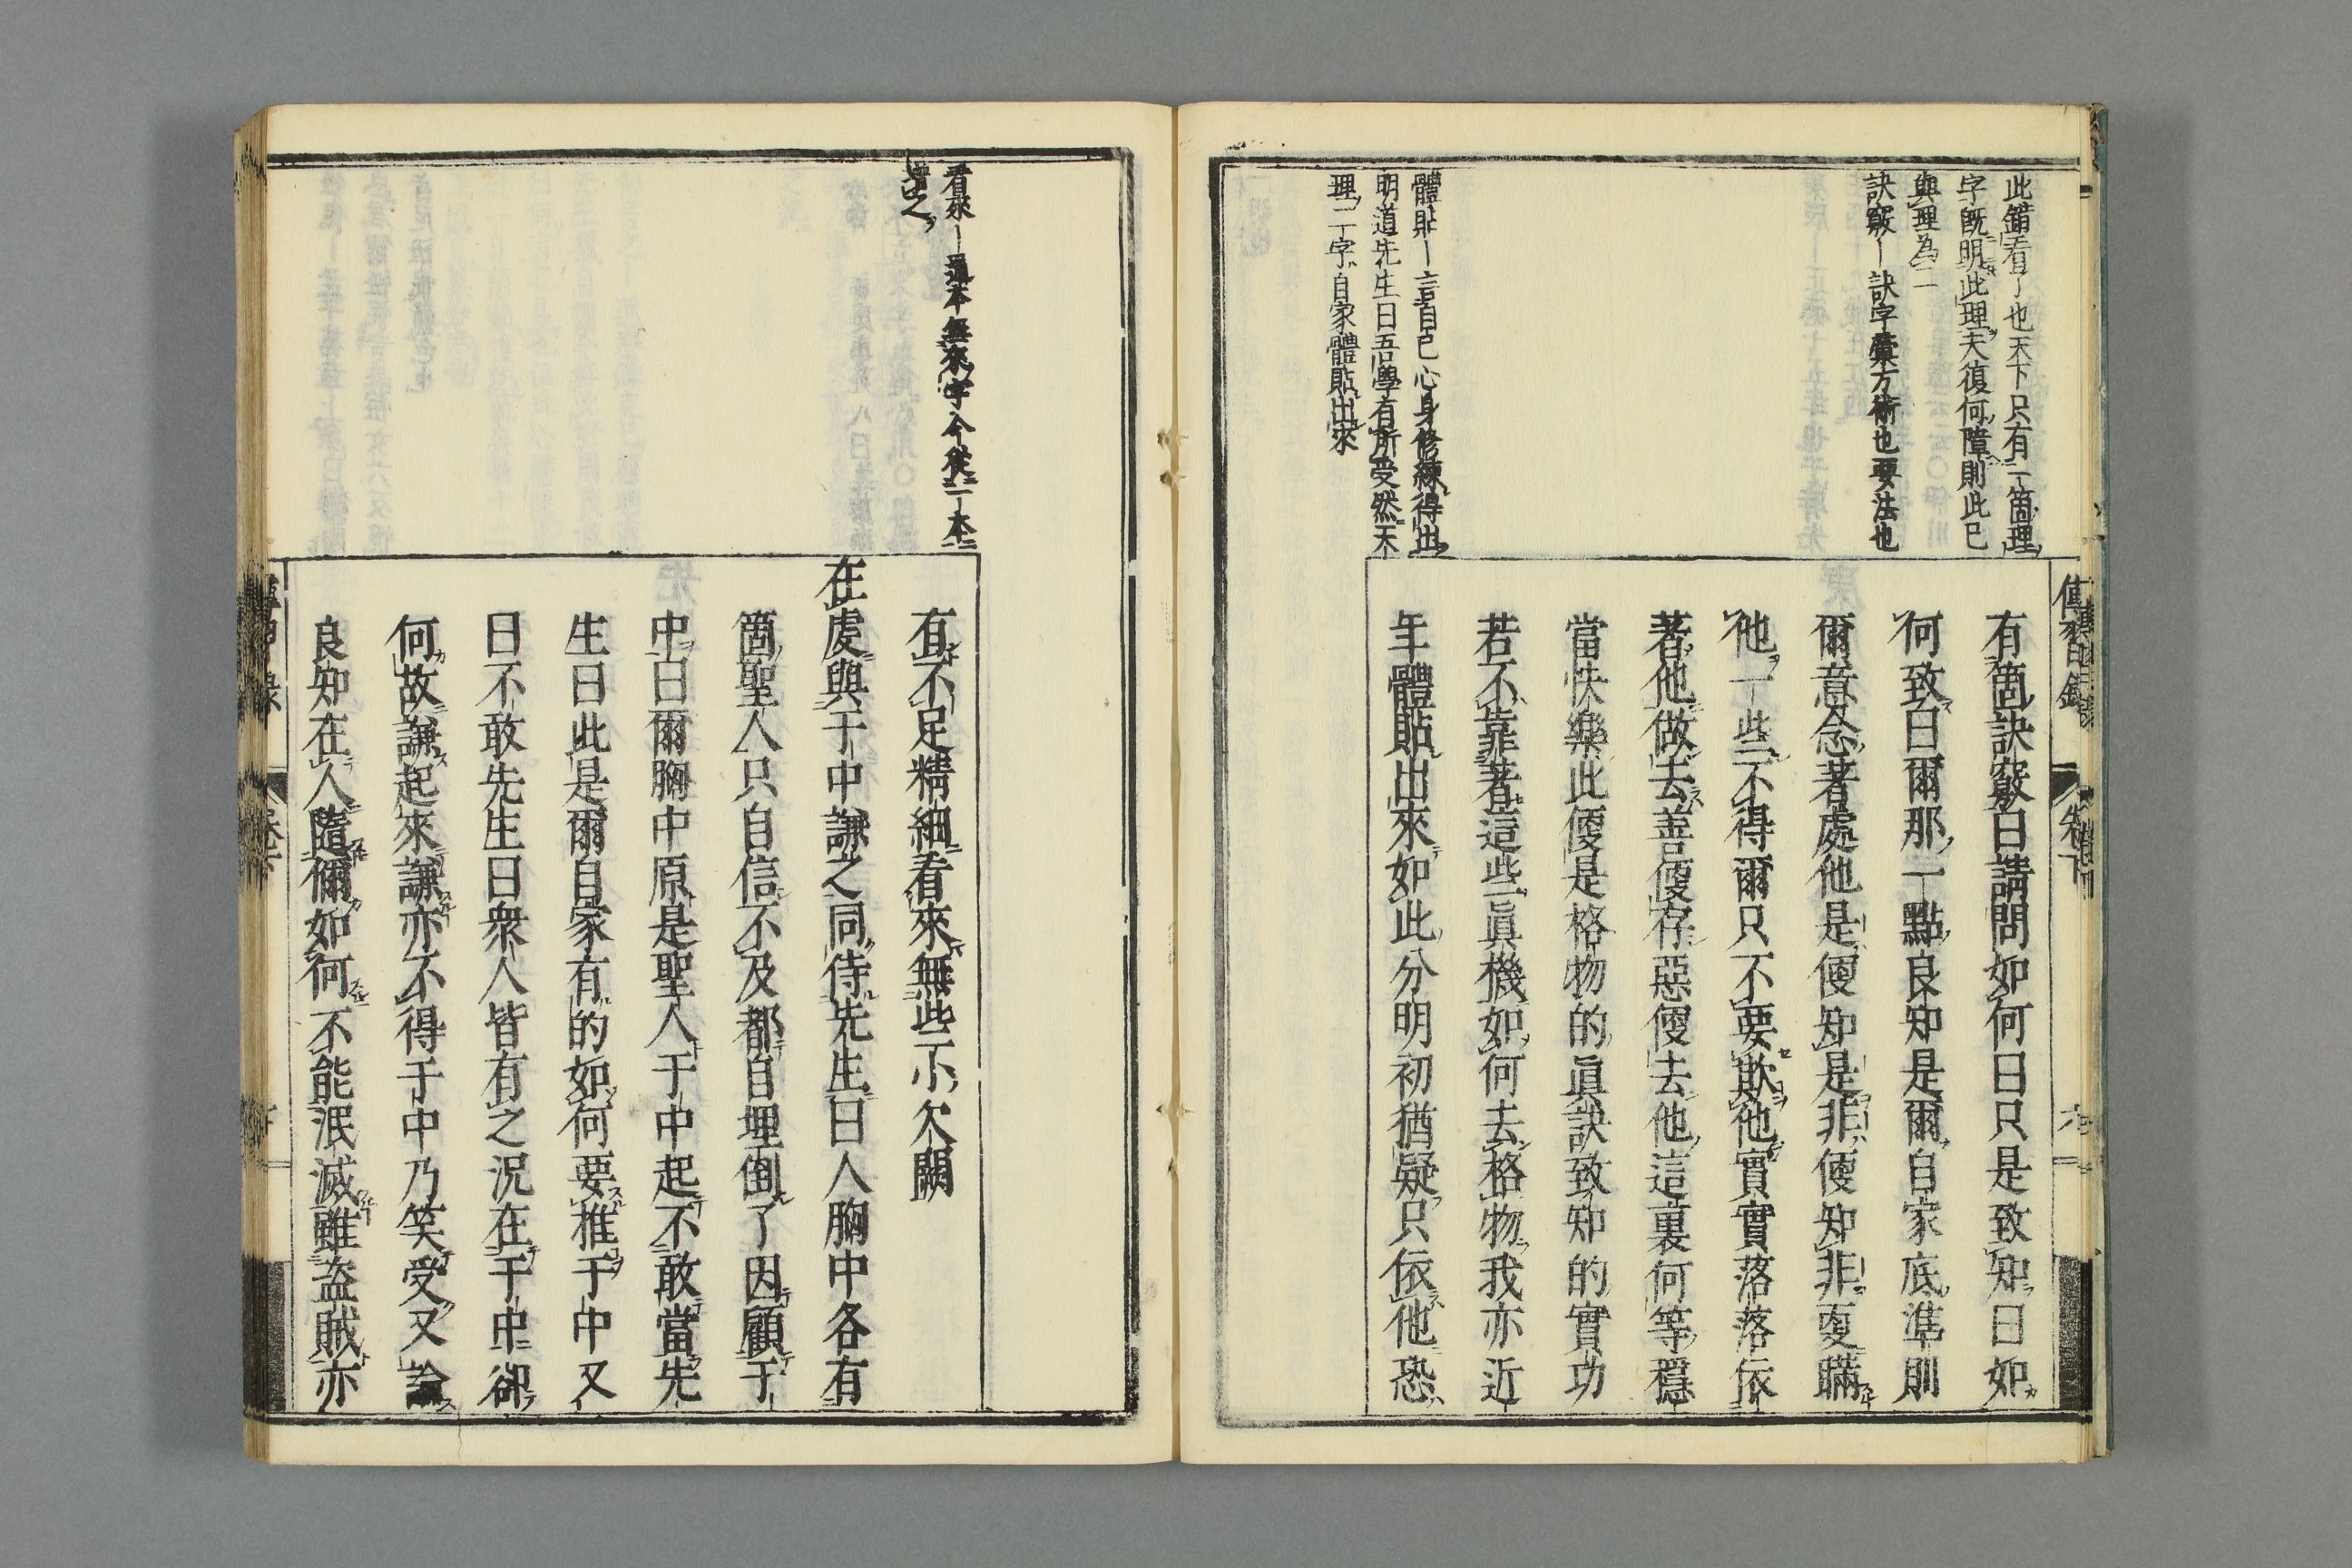 此錯看了也天下只有一箇理
字既明此理夫復何障則此已
與理為二
訣竅ー訣字彙方術也要法也
體貼ー言自已心身修練得出
明道先生曰吾學有所受然天
理二字自家體貼出來
有箇訣竅曰請問如何曰只是致知曰如
何致曰爾那一點良知是爾自家底準則
爾意念著處他是便知是非便知非更瞞
他一些不得爾只不要欺他實實落落依
著他做去善便存惡便去他這裏何等穩
當快樂此便是格物的眞訣致知的實功
若不靠著這些眞機如何去格物我亦近
年體貼出來如此分明初猶疑只依他恐
傳習錄
卷下
看來ー通本無來字今從一本
補之
有不足精細看來無些小欠闕
在虔與于中謙之同侍先生曰人胸中各有
箇聖人只自信不及都自埋倒了因顧于
中曰爾胸中原是聖人于中起不敢當先
生曰此是爾自家有的如何要推于中又
曰不敢先生曰衆人皆有之況在于中卻
何故謙起來謙亦不得于中乃笑受又論
良知在人隨儞如何不能泯滅雖盜賊亦